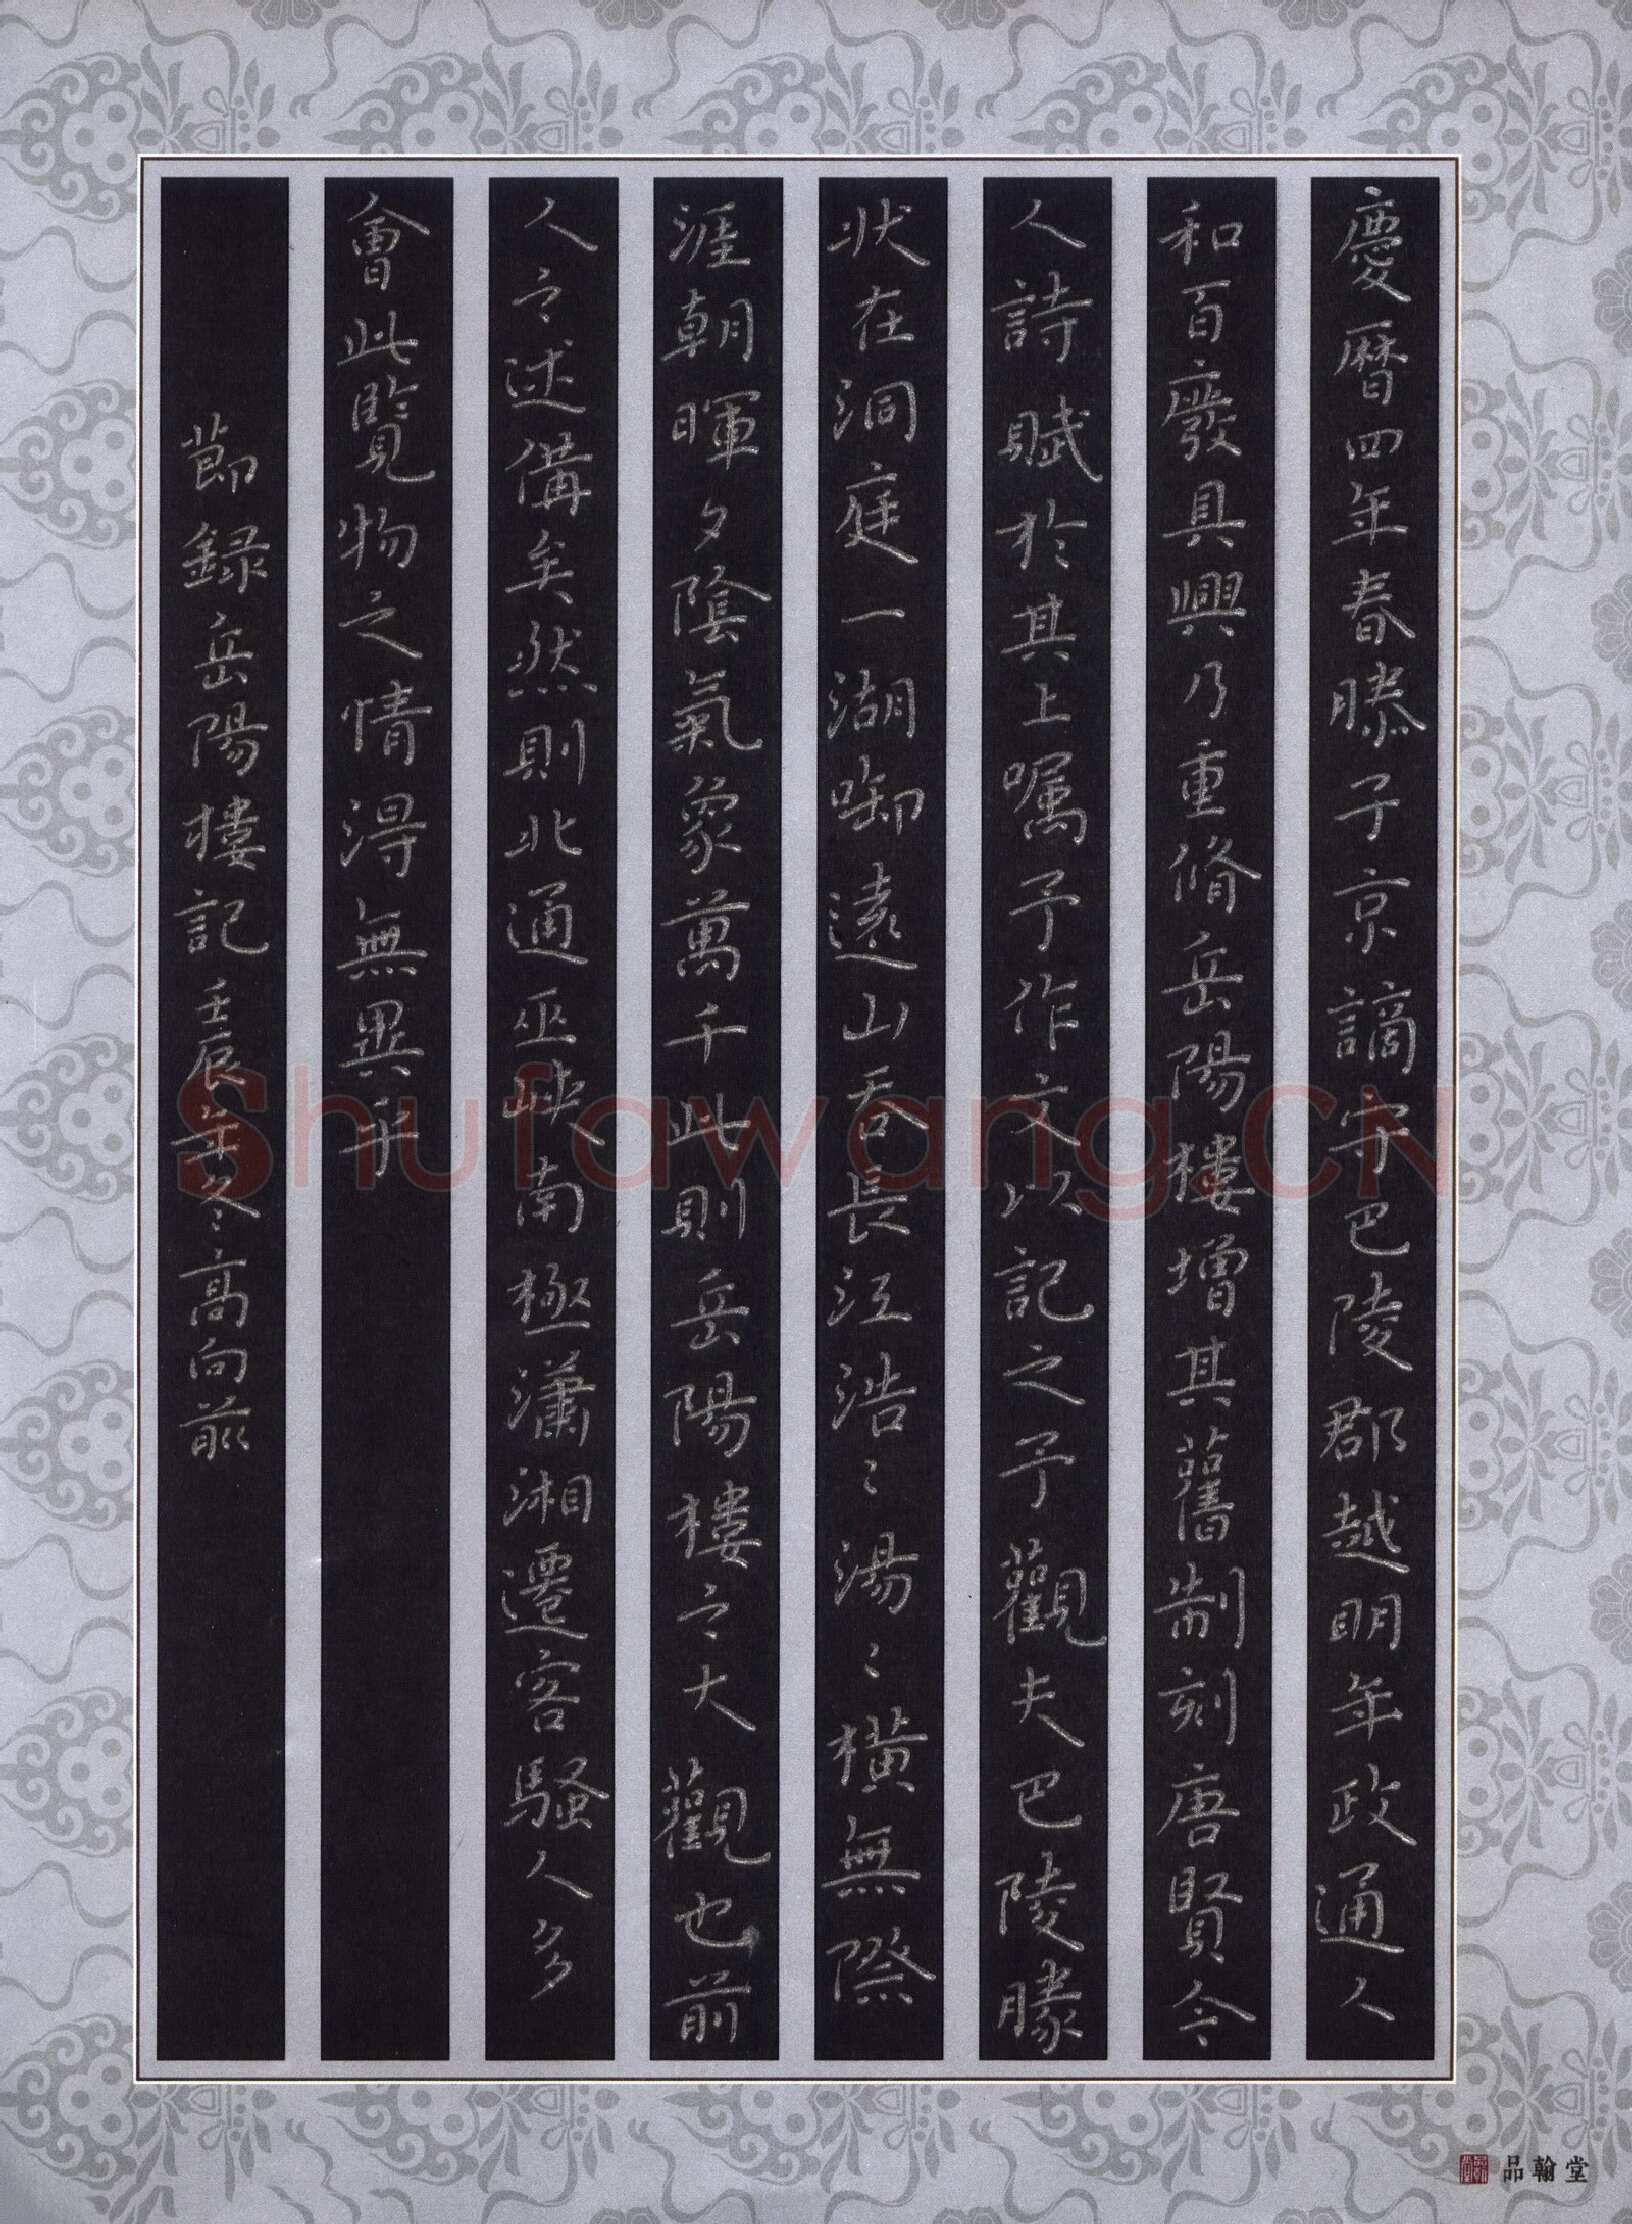 慶曆四年春滕子京謫守巴陵郡越明年政通人
和百廢具興乃重脩岳陽樓增其舊制刻唐賢今
人詩賦於其上囑予作文以記之予觀夫巴陵勝
狀在洞庭一湖啣遠山吞長江浩〻湯〻橫無際
涯朝暉夕陰氣象萬千此則岳陽樓之大觀也前
人之述備矣然則北通巫峽南極瀟湘遷客騷人多
會此覽物之情得無異乎
節錄岳陽樓記壬辰年冬高向前
Shufawang.CN
品翰堂